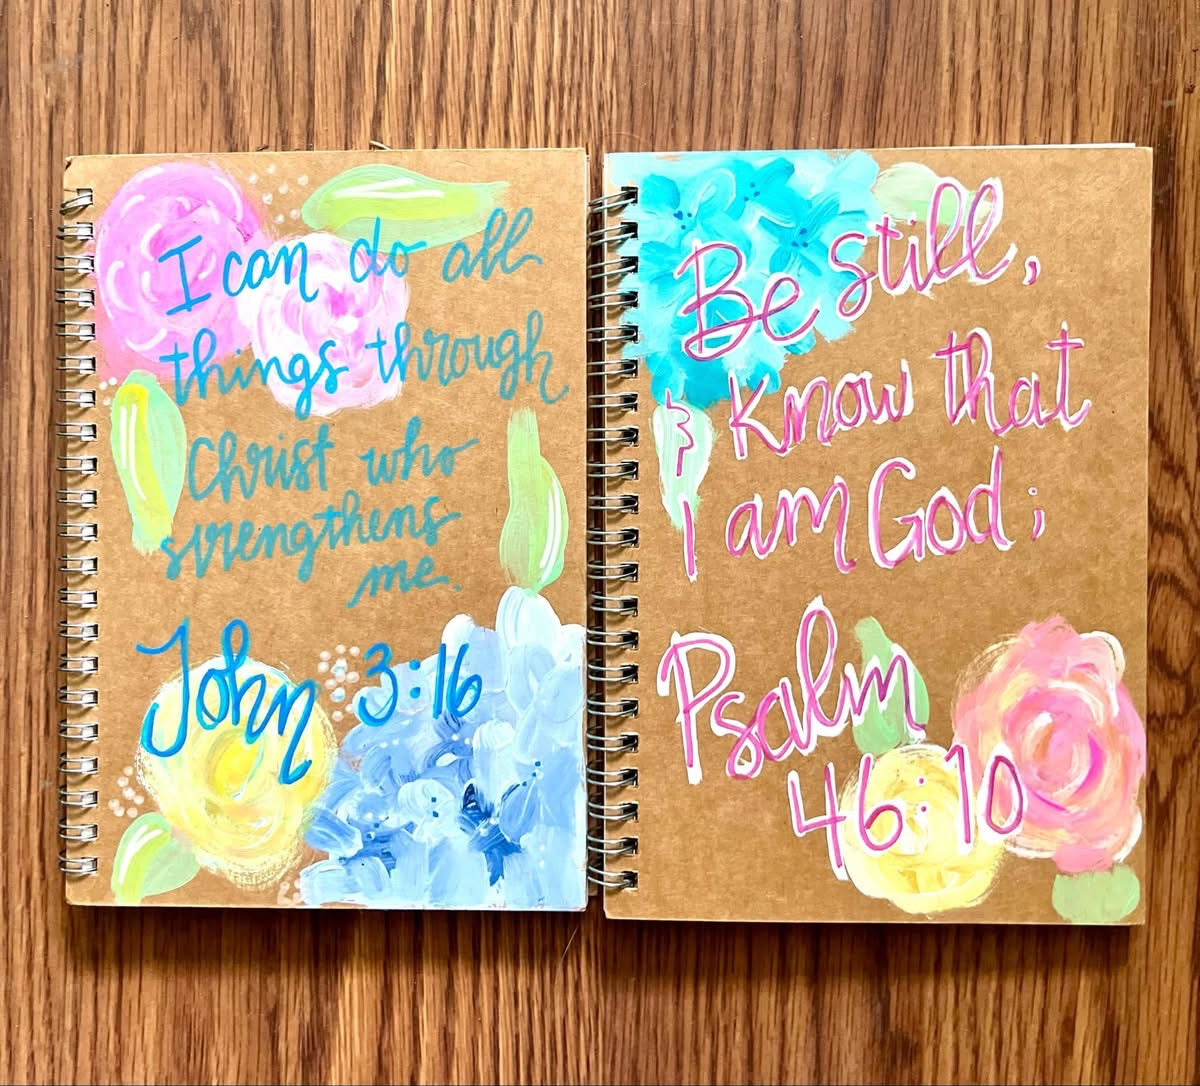 I can do all
things through
Christ who
strengthens
me.
John 3:16
Be still,
& know that
I am God;
Psalm
46:10